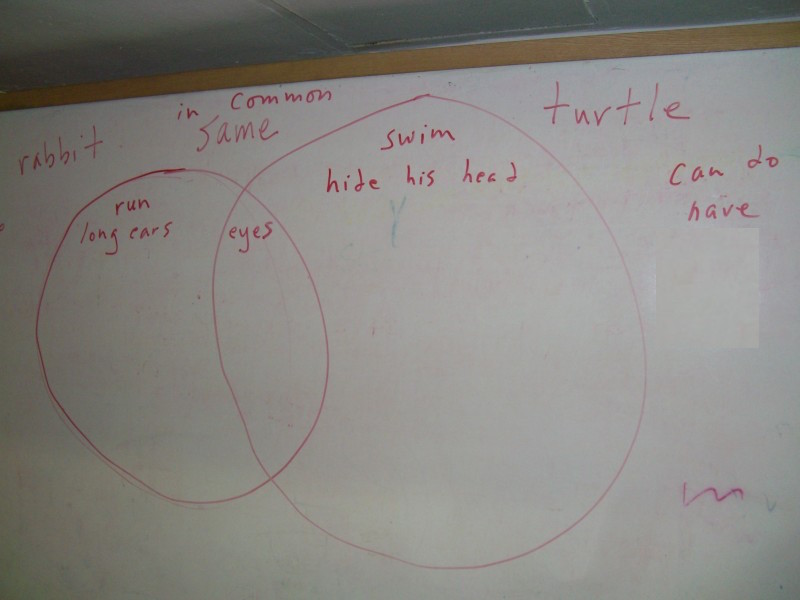 in common
same
rabbit
turtle
run
long ears
eyes
swim
hide his head
can do
have